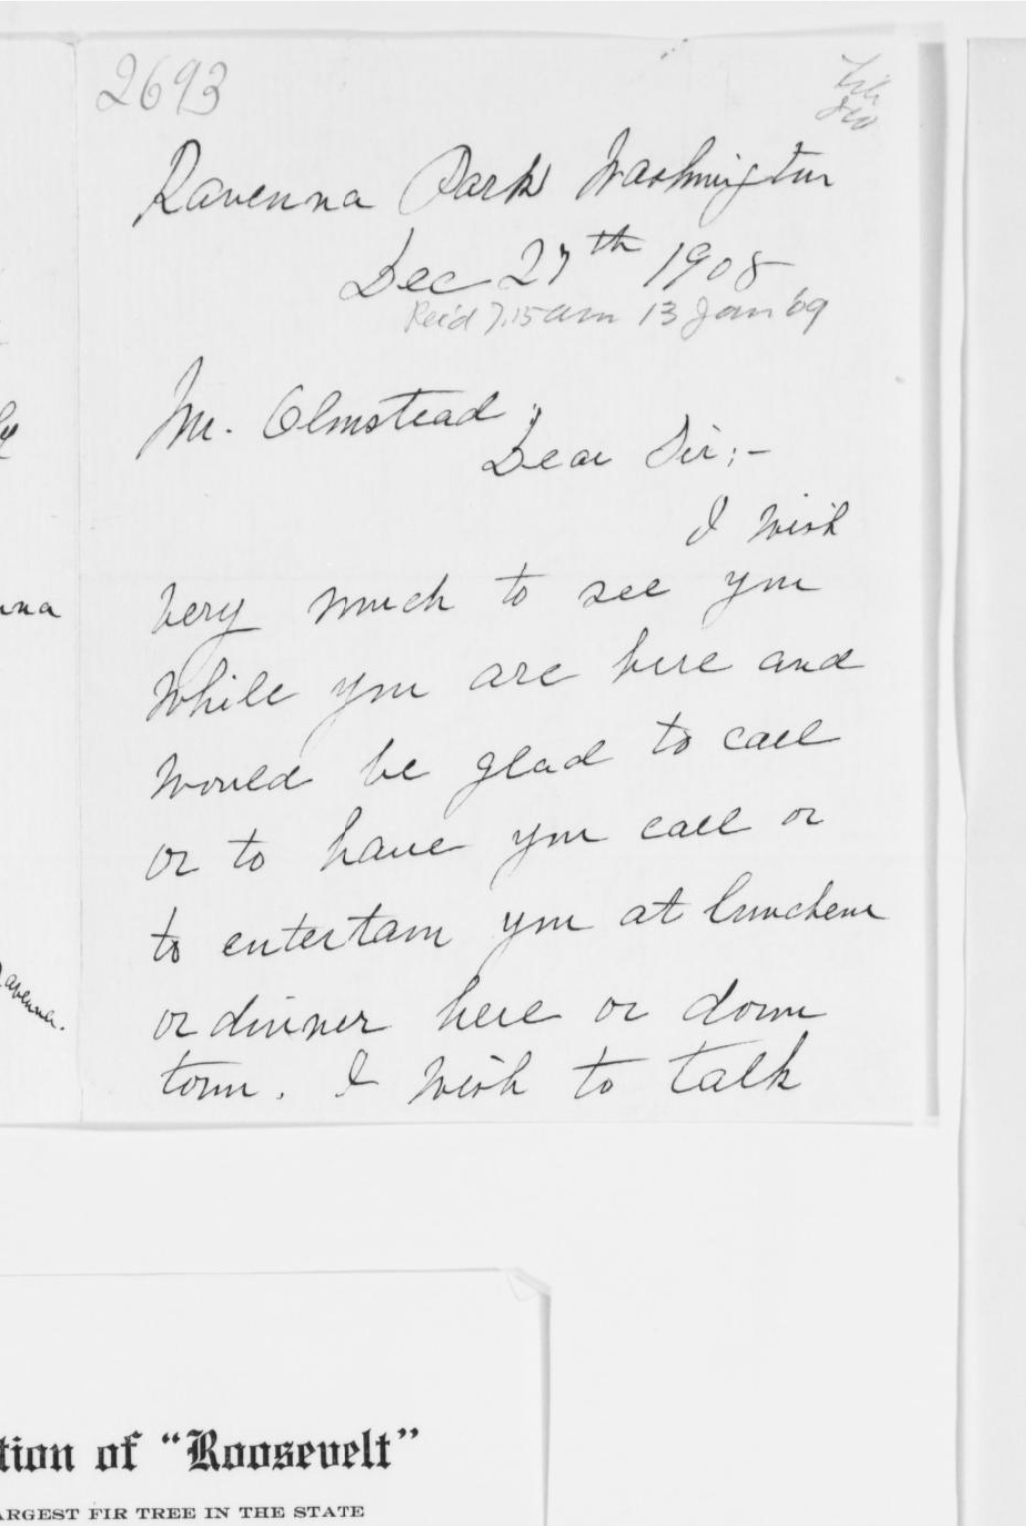 2693
Ravenna Park Washington
Dec 27th 1908
Rec'd 7.15 am 13 Jan '09
Mr. Olmstead;
Dear Sir:-
I wish
very much to see you
while you are here and
would be glad to call
or to have you call or
to entertain you at luncheon
or dinner here or down
town. I wish to talk
tion of "Roosevelt"
ARGEST FIR TREE IN THE STATE